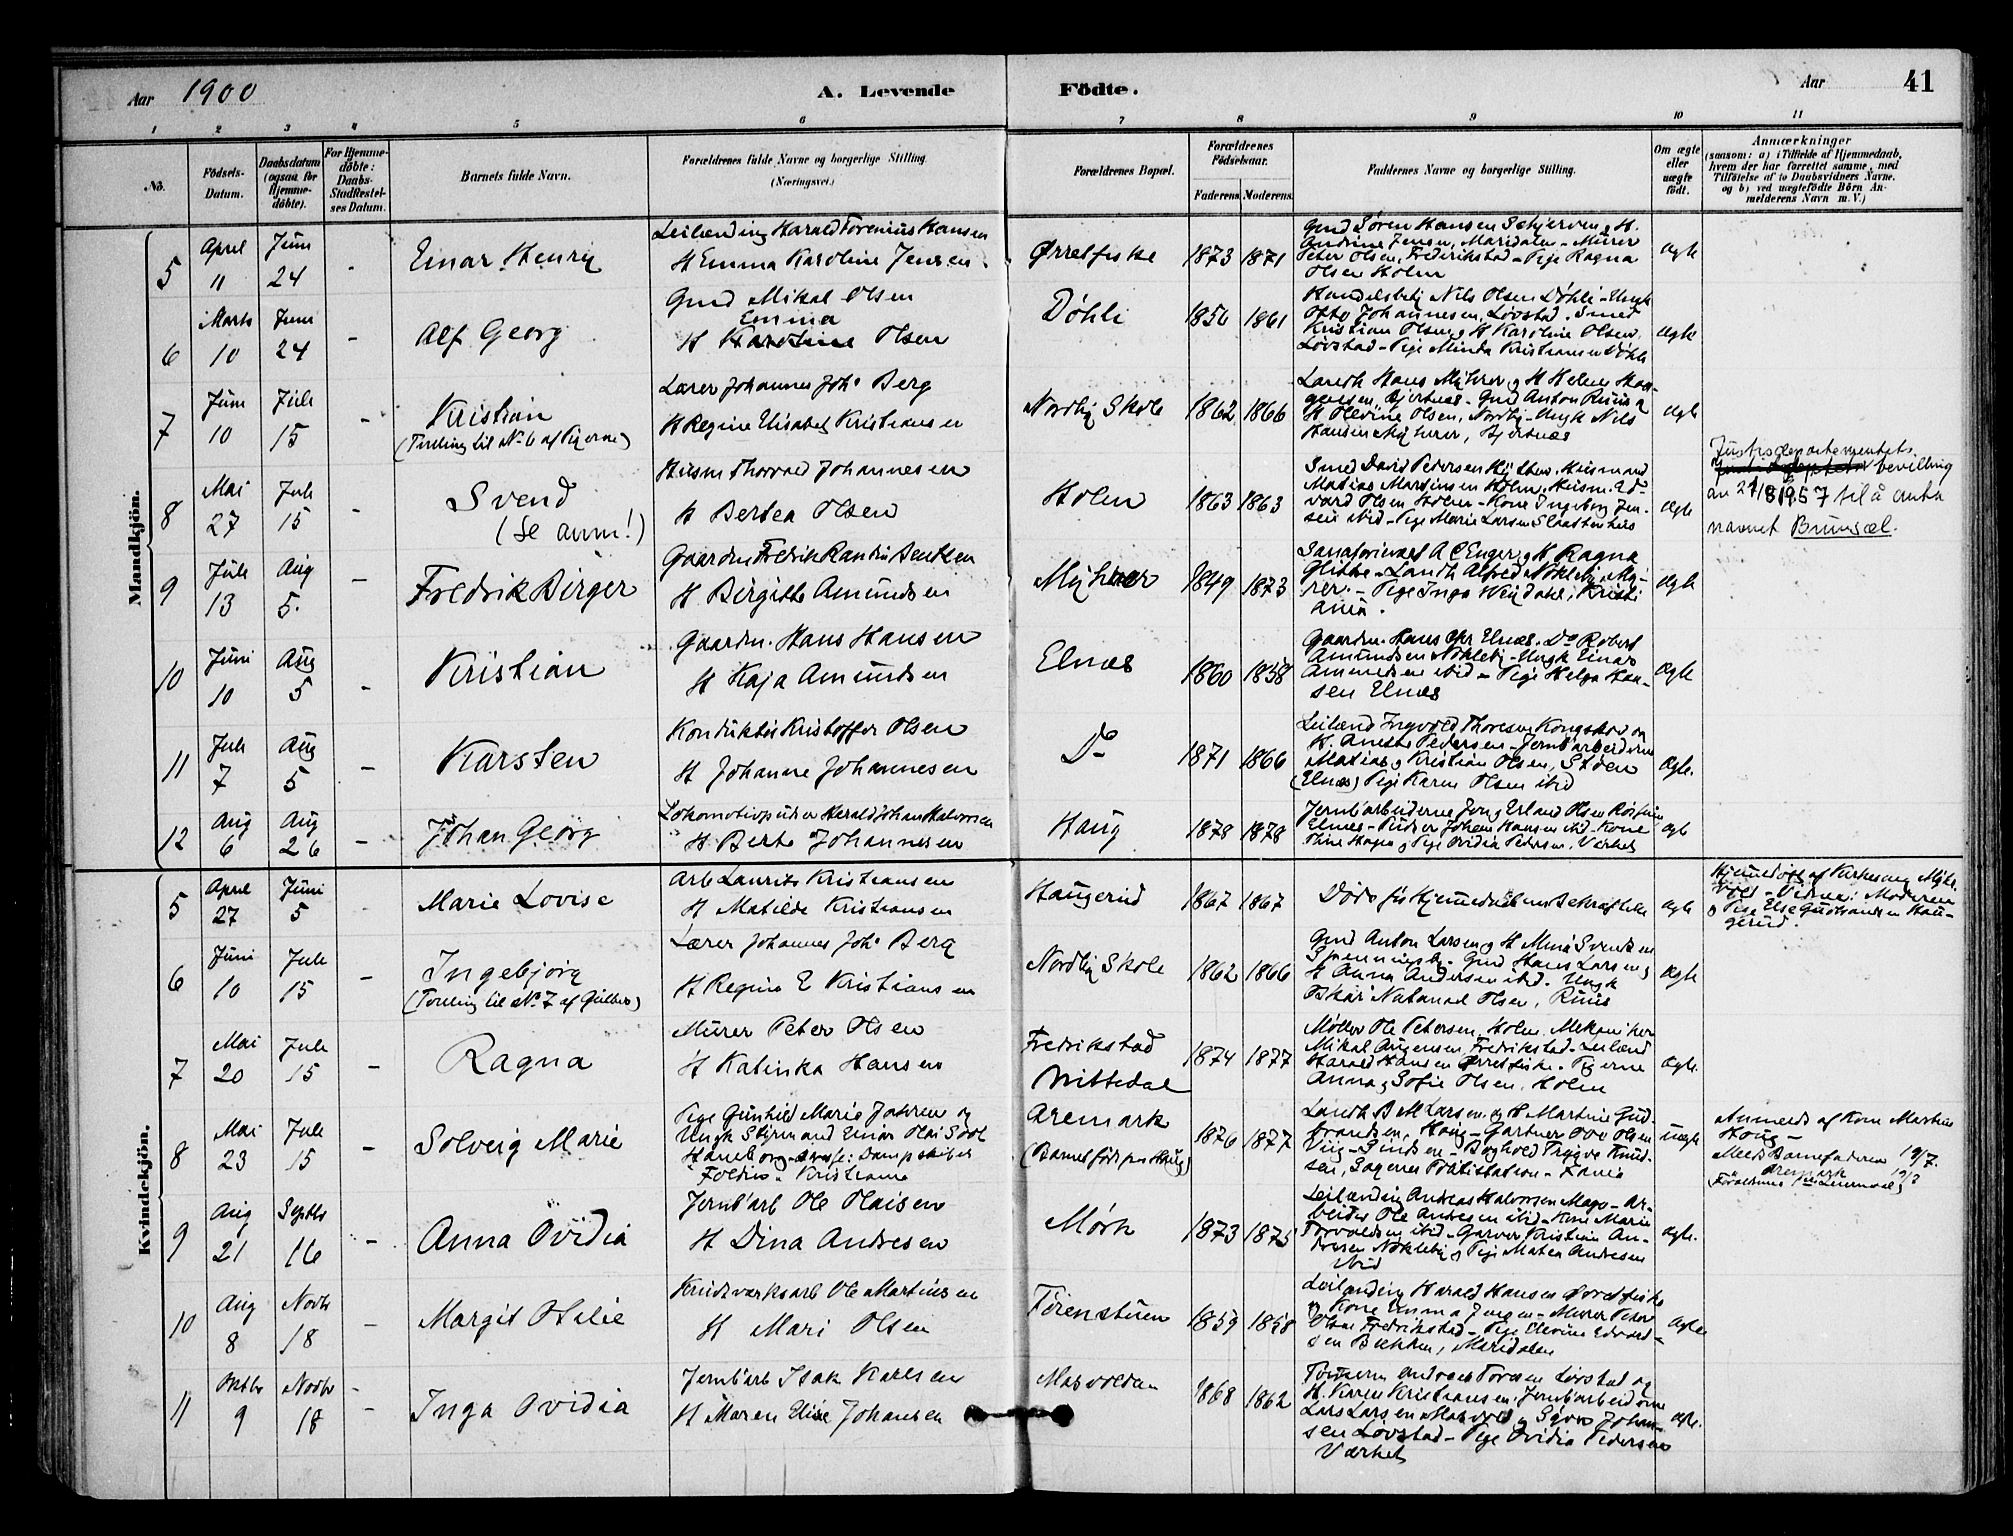 Aar 1900
A. Levende Födte.
Aar
41
1 2 3 4 5 6 7 8 9 10 11
No.
Födsels-Datum.
Daabsdatum (ogsaa for Hjemme-döbte).
For Hjemme-döbte: Daabs-Stadfæstel-ses Datum.
Barnets fulde Navn.
Forældrenes fulde Navne og borgerlige Stilling. (Næringsvei.)
Forældrenes Bopæl.
Forældrenes Födselsaar.
Faderens. Moderens.
Faddernes Navne og borgerlige Stilling.
Om ægte eller uægte födt.
Anmærkninger
(saasom: a) i Tilfælde af Hjemmedaab,
hvem der har forrettet samme, med
Tilföielse af to Daabsvidners Navne.
og b) ved uægtefödte Börn An-
melderens Navn m. V.)
Mandkjön.
5 April 11 Juni 24 - Einar Henry
Leilænding Harald Torenius Hansen
H Emma Karoline Jensen
Ørretfiske 1873 1871
Gmd Søren Hansen Schjerven, H.
Andrine Jensen, Maridalen - Murer
Peter Olsen, Fredrikstad - Pige Ragna
Olsen Holm
ægte
6 Marts 10 Juni 24 - Alf Georg
Gmd Mikal Olsen
Emma
H Karoline Olsen
Döhli 1850 1861
Handelsbetj Nils Olsen Døhli - Ungk
Otto Johannesen, Løvstad. Smed
Kristian Olsen og H Karoline Olsen,
Løvstad - Pige Minda Kristiansen Døhli
ægte
7 Juni 10 Juli 15 - Kristian
(Tvilling til No 6 af Pigerne)
Lærer Johannes Joh. Berg
H Regine Elisabeth Kristiansen
Nordby Skole 1862 1866
Landh Hans Myhrer og H Helene Haa-
gensen, Bjertnæs - Gmd Anton Ruus og
H Olevine Olsen, Nordby - Ungk Nils
Hansen Myhrer, Bjertnæs
ægte
8 Mai 27 Juli 15 - Svend
(Se anm!)
Husm Thorvald Johannesen
H Bertea Olsen
Holm 1863 1863
Smed David Pedersen, Husmand
Matias Martinsen Holm, Husm. Ed-
vard Olsen Holm - Kone Ingeborg Jen-
sen ibid - Pige Marie Larsen
ægte
Justisdepartementets
bevilling
av 21/8 1957 til å anta
navnet Brunsæl.
9 Juli 13 Aug 5. - Fredrik Birger
Gaardm Fredrik Randin Bentsen
H. Birgitte Amundsen
Myhrer 1849 1873
A C Enger og H Ragna
Glitre - Landh Alfred Nøkleby, My-
rer. - Pige Inga, Kristi
ania.
ægte
10 Juni 10 Aug 5 - Kristian
Gaardm. Hans Hansen
H Kaja Amundsen
Elnæs 1860 1858
Gaardm. Hans Chr Elnæs. Do Robert
Amundsen Nøkleby - Ungk Einar
Amundsen ibid - Pige Helga Han-
sen Elnæs
ægte
11 Juli 7 Aug 5 - Karsten
Konduktör Kristoffer Olsen
H Johanne Johannesen
Do 1871 1866
Leilænd Ingvald Thoresen Kongskov og
H. Anette Pedersen - Jernb arbeiderne
Matias og Kristian Olsen, Støen
(Elnæs) Pige Karen Olsen ibid
ægte.
12 Aug 6 Aug 26 - Johan Georg
Lokomotivpudser Harald Johan Halvorsen
H Berte Johannesen
Haug 1878 1878
Jernb arbeiderne Jon og Erland Olsen
Elnæs - Pudser Johan Hansen ibid - Kone
Thine Hagen og Pige Ovidia Pedersen, Værket
ægte
Kvindekjön.
5 April 27 Juni 5 - Marie Lovise
Arb Laurits Kristiansen
H Matilde Kristiansen
Haugerud 1867 1867
Døde før Hjemmedaabens Bekræftelse
ægte
Hjemmedøbt af Kirkesang. Myhr-
vold - Vidner: Moderen
og Pige Else Gudbrandsen Hau-
gerud.
6 Juni 10 Juli 15 - Ingebjørg
(Tvilling til No 7 af Gutter)
Lærer Johannes Joh. Berg
H Regine E Kristiansen
Nordby Skole 1862 1866
Gmd Anton Larsen og H Mina Svendsen
Gmd Hans Larsen og
H Anna Andersen ibid. Ungk
Oskar Natanael Olsen, Ruus
ægte
7 Mai 20 Juli 15 - Ragna
Murer Peter Olsen
H Katinka Hansen
Fredrikstad
Nittedal 1874 1877
Møller Ole Petersen, Holm. Mekaniker
Mikal Augensen, Fredrikstad - Leilænd
Harald Hansen Ørretfiske. Pigerne
Anna og Sofie Olsen, Holm
ægte
8 Mai 23 Juli 15 - Solveig Marie
Pige Gunhild Marie Johnsen og
Ungk Styrmand Einar Olai
Haneborg - adresse: Dampskibet
"Foldin" Kristiania
Aremark
(Barnet født paa Haug) 1876 1877
Landh B M Larsen og H Martine Gud-
brandsen, Haug - Gartner Ove Olsen
Borghild Trygve Knud-
sen, Sagenes Politistation
uægte
Anmeldt af Kone Martine
Haug -
Meldt Barnefaderen 19/7.
Aremark
9 Aug 21 Septb 16 - Anna Ovidia
Jernb arb Ole Olaisen
H Dina Andresen
Mørk 1873 1875
Leilænding Andreas Halvorsen Mago - Ar-
beider Ole Andresen ibid - Kone Marie
Torvaldsen ibid - Garver Kristian An-
dresen Nøkleby og Pige Matea Andresen
ibid
ægte.
10 Aug 8 Novb 18 - Margit Otilie
Krudtværksarb Ole Martinsen
H Mari Olsen
Törenstuen 1859 1858
Leilænding Harald Hansen Ørretfiske
og Kone Emma Jensen - Murer Peter
Olsen Fredrikstad - Pige Olevine Edvard-
sen Bakken, Maridalen
ægte
11 Oktbr 9 Novbr 18 - Inga Ovidia
Jernb arb Isak Karlsen
H Maren Elise Johansen
Masvolden 1868 1862
Andreas Toresen Løvstad og
H. Karen Kristiansen, Jernb arbeiderne
Lars Larsen Masvold og Johan-
sen Løvstad - Pige Ovidia Pedersen
Værket
ægte.